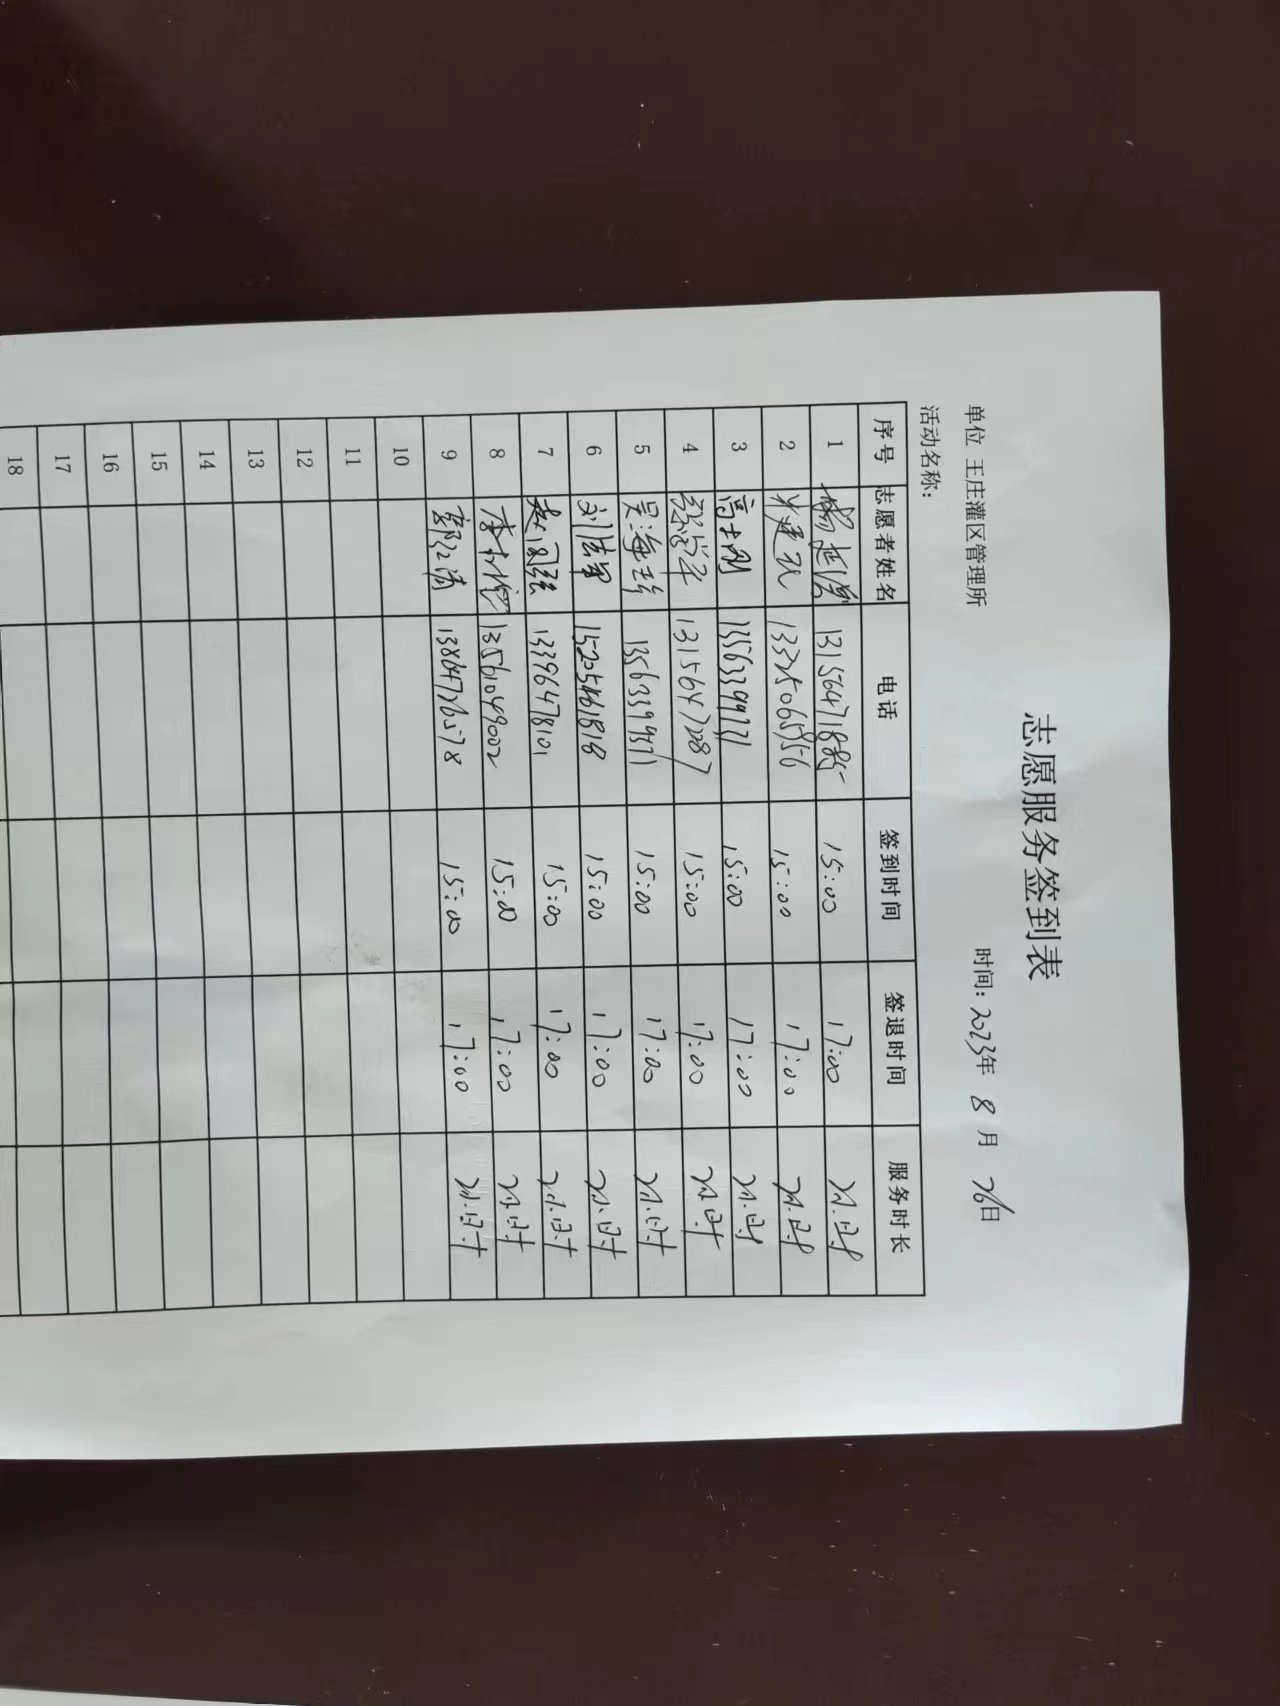 志愿服务签到表
单位 王庄灌区管理所 时间: 2023年 8 月 26日
活动名称:
序号 志愿者姓名 电话 签到时间 签退时间 服务时长
1 杨延滨 13156471885 15:00 17:00 2小时
2 建 13325065956 15:00 17:00 2小时
3 高士刚 13563399771 15:00 17:00 2小时
4 13156472287 15:00 17:00 2小时
5 吴海珍 15:00 17:00 2小时
6 刘 15205461818 15:00 17:00 2小时
7 赵国强 13396478101 15:00 17:00 2小时
8 李 13561049002 15:00 17:00 2小时
9 郭红涛 13864726578 15:00 17:00 2小时
10
11
12
13
14
15
16
17
18